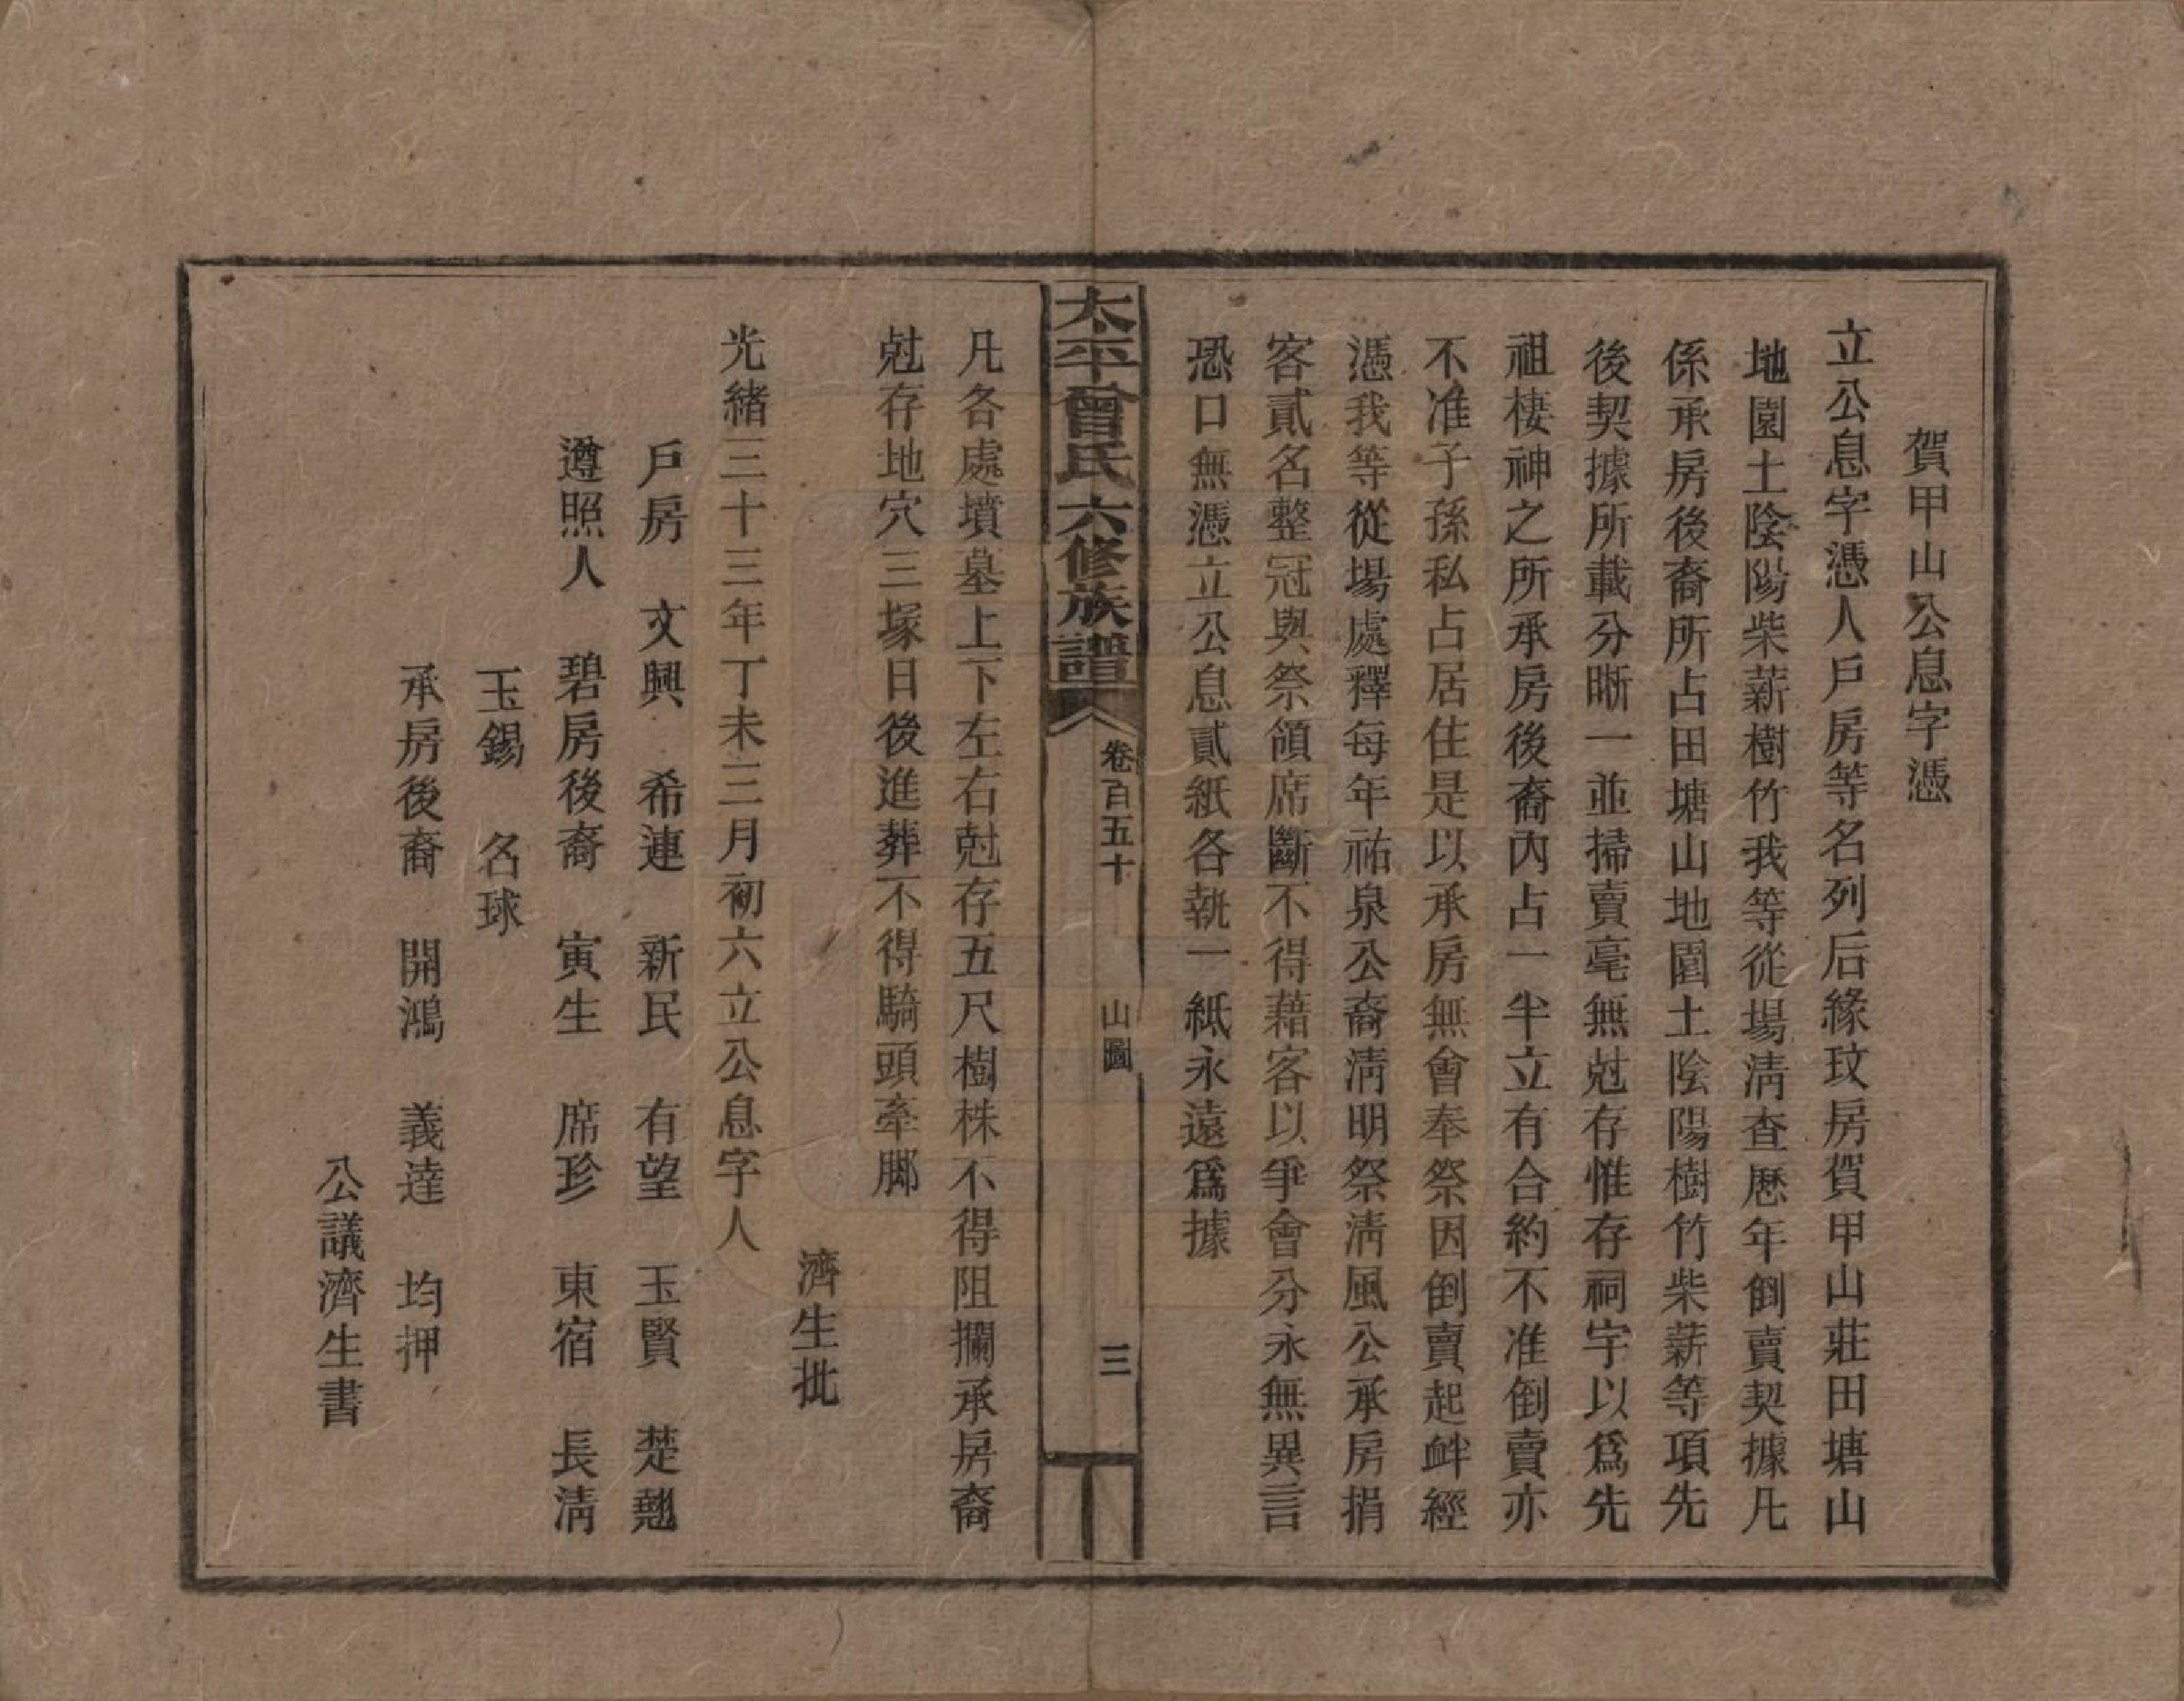 賀甲山公息字憑
立公息字憑人戶房等名列后緣玟房賀甲山莊田塘山
地園土陰陽柴薪樹竹我等從場清查歷年倒賣契據凡
係承房後裔所占田塘山地園土陰陽樹竹柴薪等項先
後契據所載分晰一並掃賣毫無尅存惟存祠宇以爲先
祖棲神之所承房後裔內占一半立有合約不准倒賣亦
不准子孫私占居住是以承房無會奉祭因倒賣起衅經
憑我等從場處釋每年祐泉公裔清明祭淸風公承房捐
客貳名整冠與祭領席斷不得藉客以爭會分永無異言
恐口無憑立公息貳紙各執一紙永遠爲據
太平曾氏六修族譜
卷百五十
山圖
三
凡各處墳墓上下左右尅存五尺樹株不得阻攔承房裔
尅存地穴三塚日後進葬不得騎頭牽脚
濟生批
光緒三十三年丁未三月初六立公息字人
戶房 文興 希連 新民 有望 玉賢 楚翹
遵照人 碧房後裔 寅生 席珍 東宿 長清
玉錫 名球
承房後裔 開鴻 義達 均押
公議濟生書